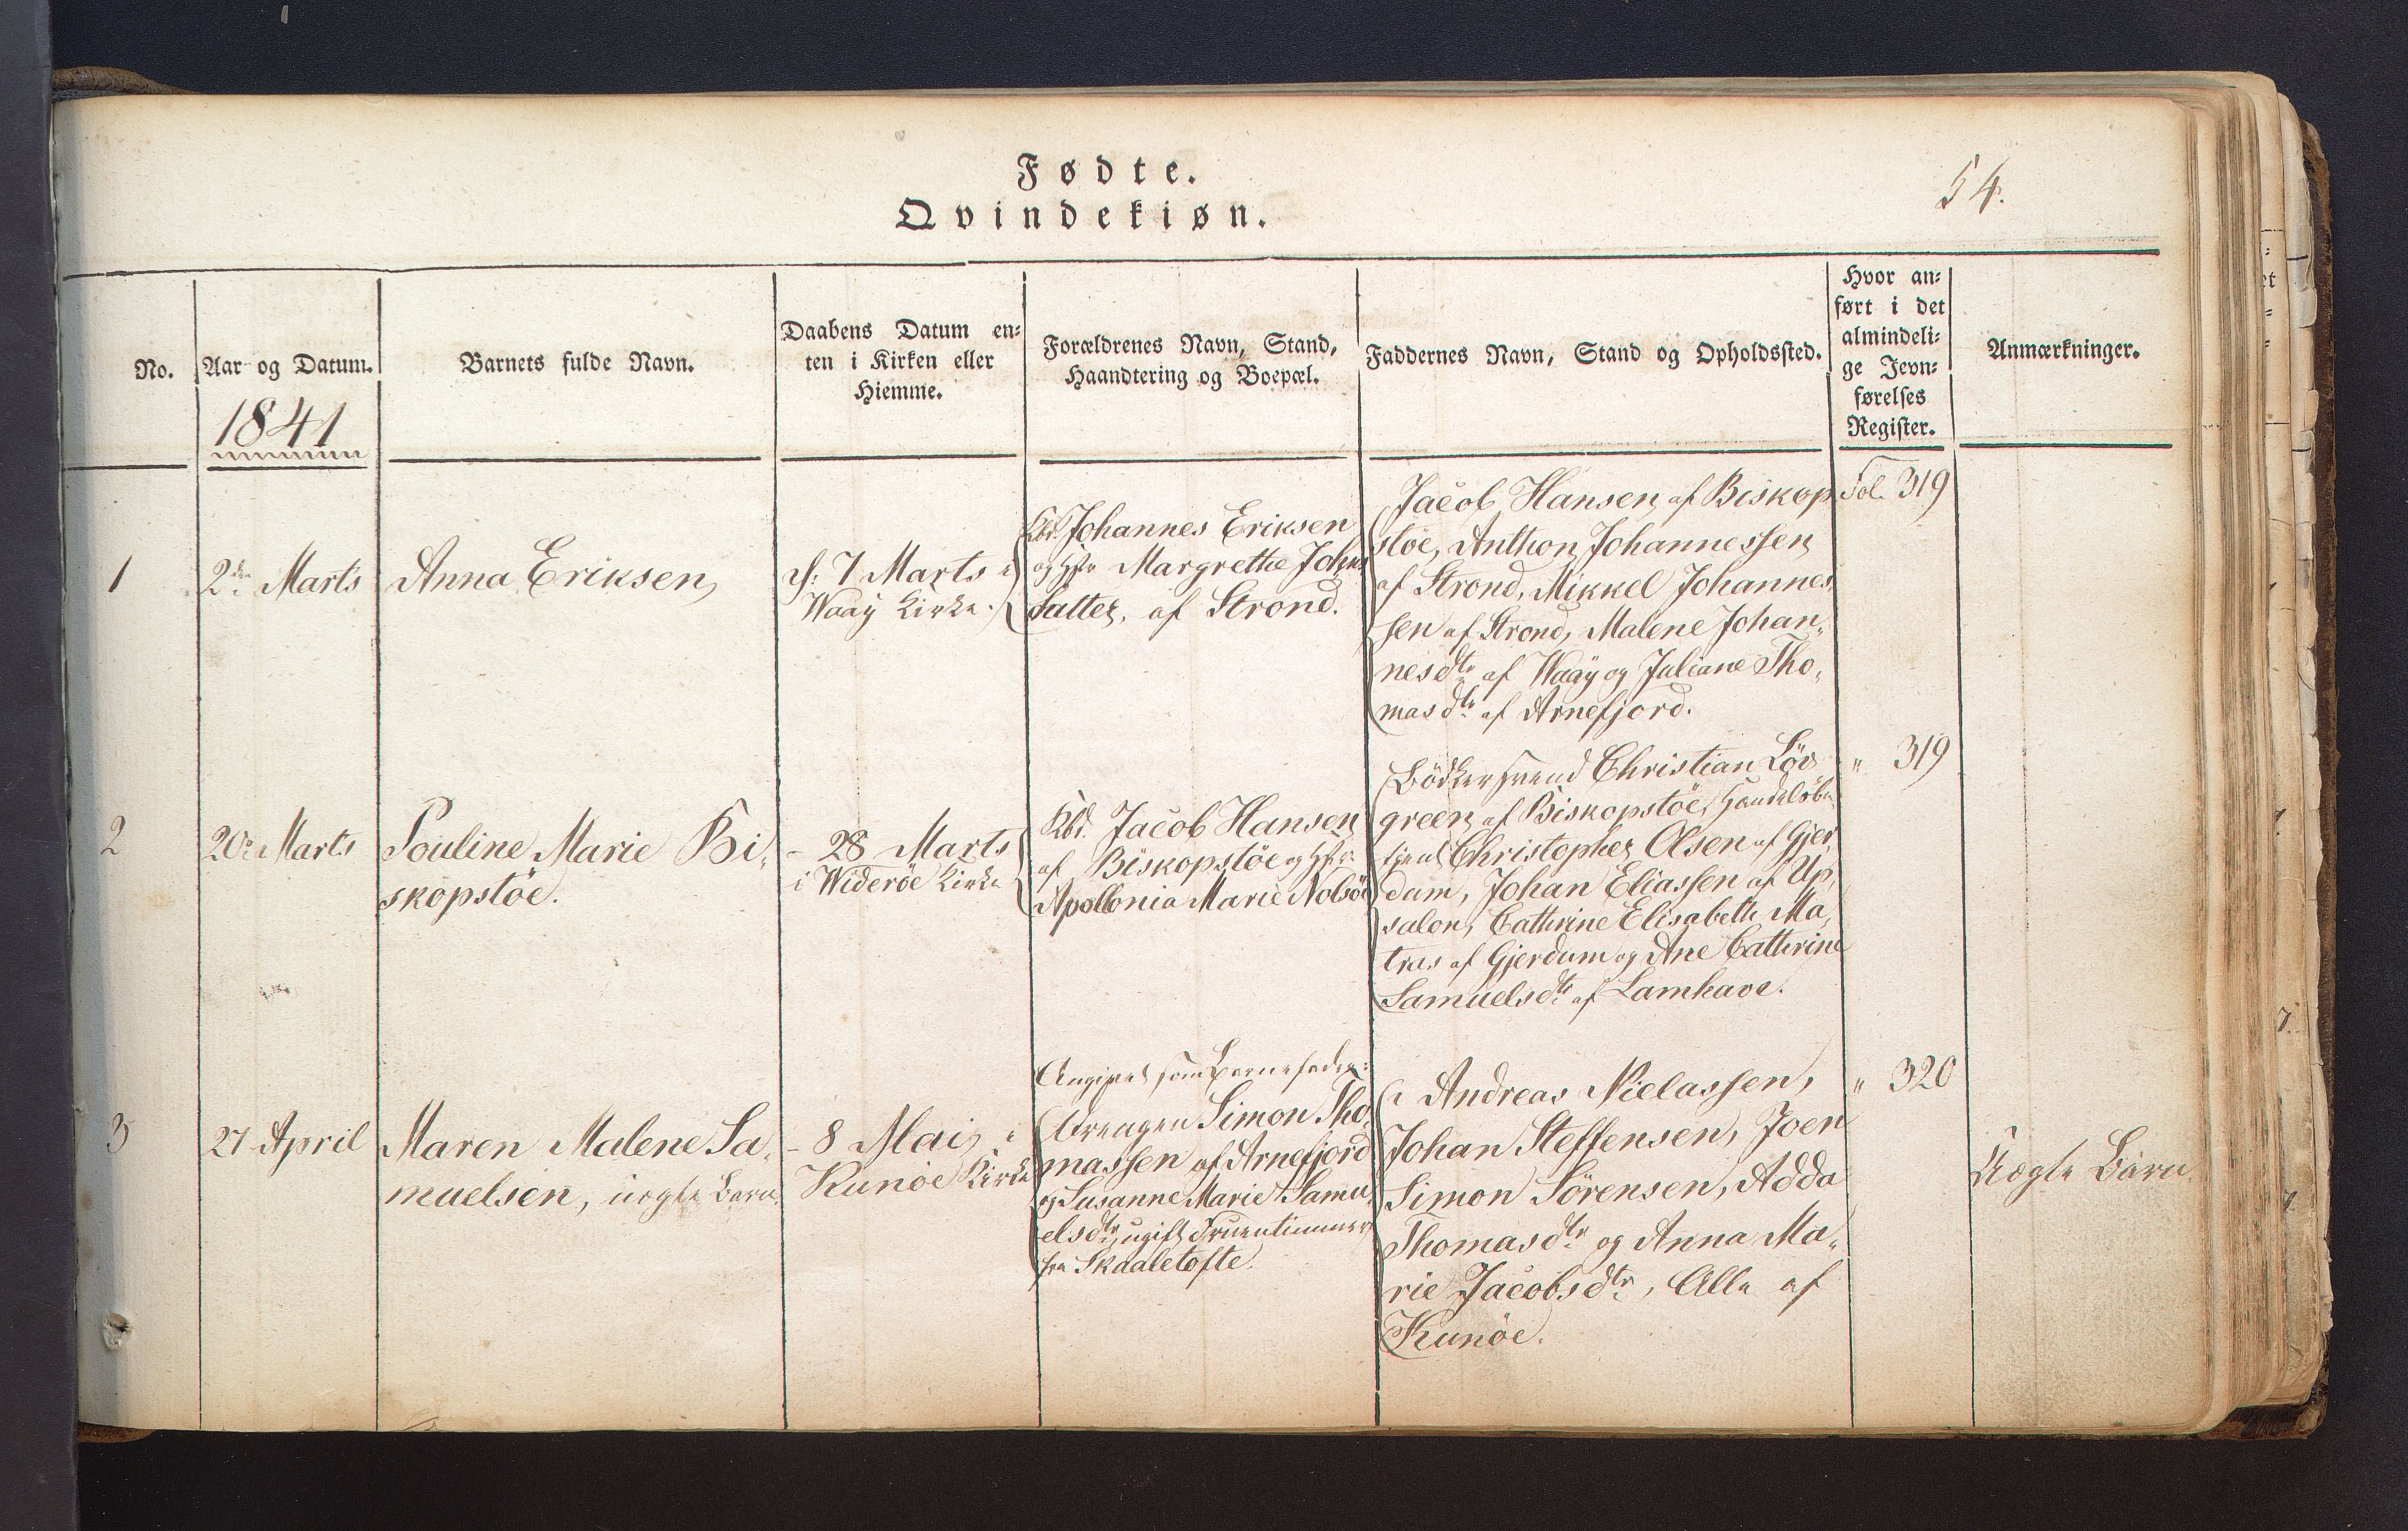 54.
Fødte.
Qvindekiøn.
No.
Aar og Datum.
1841
Barnets fulde Navn.
Daabens Datum en-
ten i Kirken eller
Hiemme.
Forældrenes Navn, Stand,
Haandtering og Boepæl.
Faddernes Navn, Stand og Opholdssted.
Hvor an-
ført i det
almindeli-
ge Jevn-
førelses
Register.
Anmærkninger.
1
2den Marts
Anna Eriksen
7 Marts i
Waaÿ Kirke.
Johannes Eriksen
og Hstr Margrethe Johns
datter, af Strond.
Jacob Hansen af Biskop
støe, Anthon Johannessen
af Strond, Mikkel Johannes,
sen af Strond, Malene Johan,
nesdtr af Waaÿ og Juliane Tho,
masdtr af Arnefjord.
Fol. 319
2
20. Marts
Pouline Marie Bi,
skopstöe.
- 28 Marts
i Wideröe Kirke
Kbd. Jacob Hansen
af Biskopstöe og Hstr
Apollonia Marie Nolsöe
Bödkersvend Christian Löv
green af Biskopstöe, Handelsbe
tjent Christopher Olsen af Gjer,
dum, Johan Eliassen af Up,
salon, Cathrine Elisabeth Ma,
tras af Gjerdum og Ane Cathrine
Samuelsdtr af Lamhave.
" 319
3
27 April
Maren Malene Sa,
muelsen, uægte Barn.
- 8 Mai, i
Kunöe Kirke
Angivet som Barnefader:
Drengen Simon Tho,
massen af Arnefjord
og Susanne Marie Samu,
elsdtr, ugift Fruentimmer
fra Skaaletofte.
Andreas Nielassen,
Johan Steffensen, Joen
Simon Sörensen, Adda
Thomasdtr og Anna Ma,
rie Jacobsdtr, Alle af
Kunöe.
" 320
Uægte Barn.